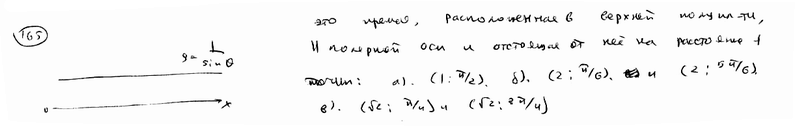 165
ρ = 1/sin θ
0 x
это прямая, расположенная в верхней полупл-ти,
|| полярной оси и отстоящая от неё на расстояние 1
точки: а). (1; π/2). б). (2; π/6). и (2; 5π/6).
в). (√2; π/4) и (√2; 3π/4)